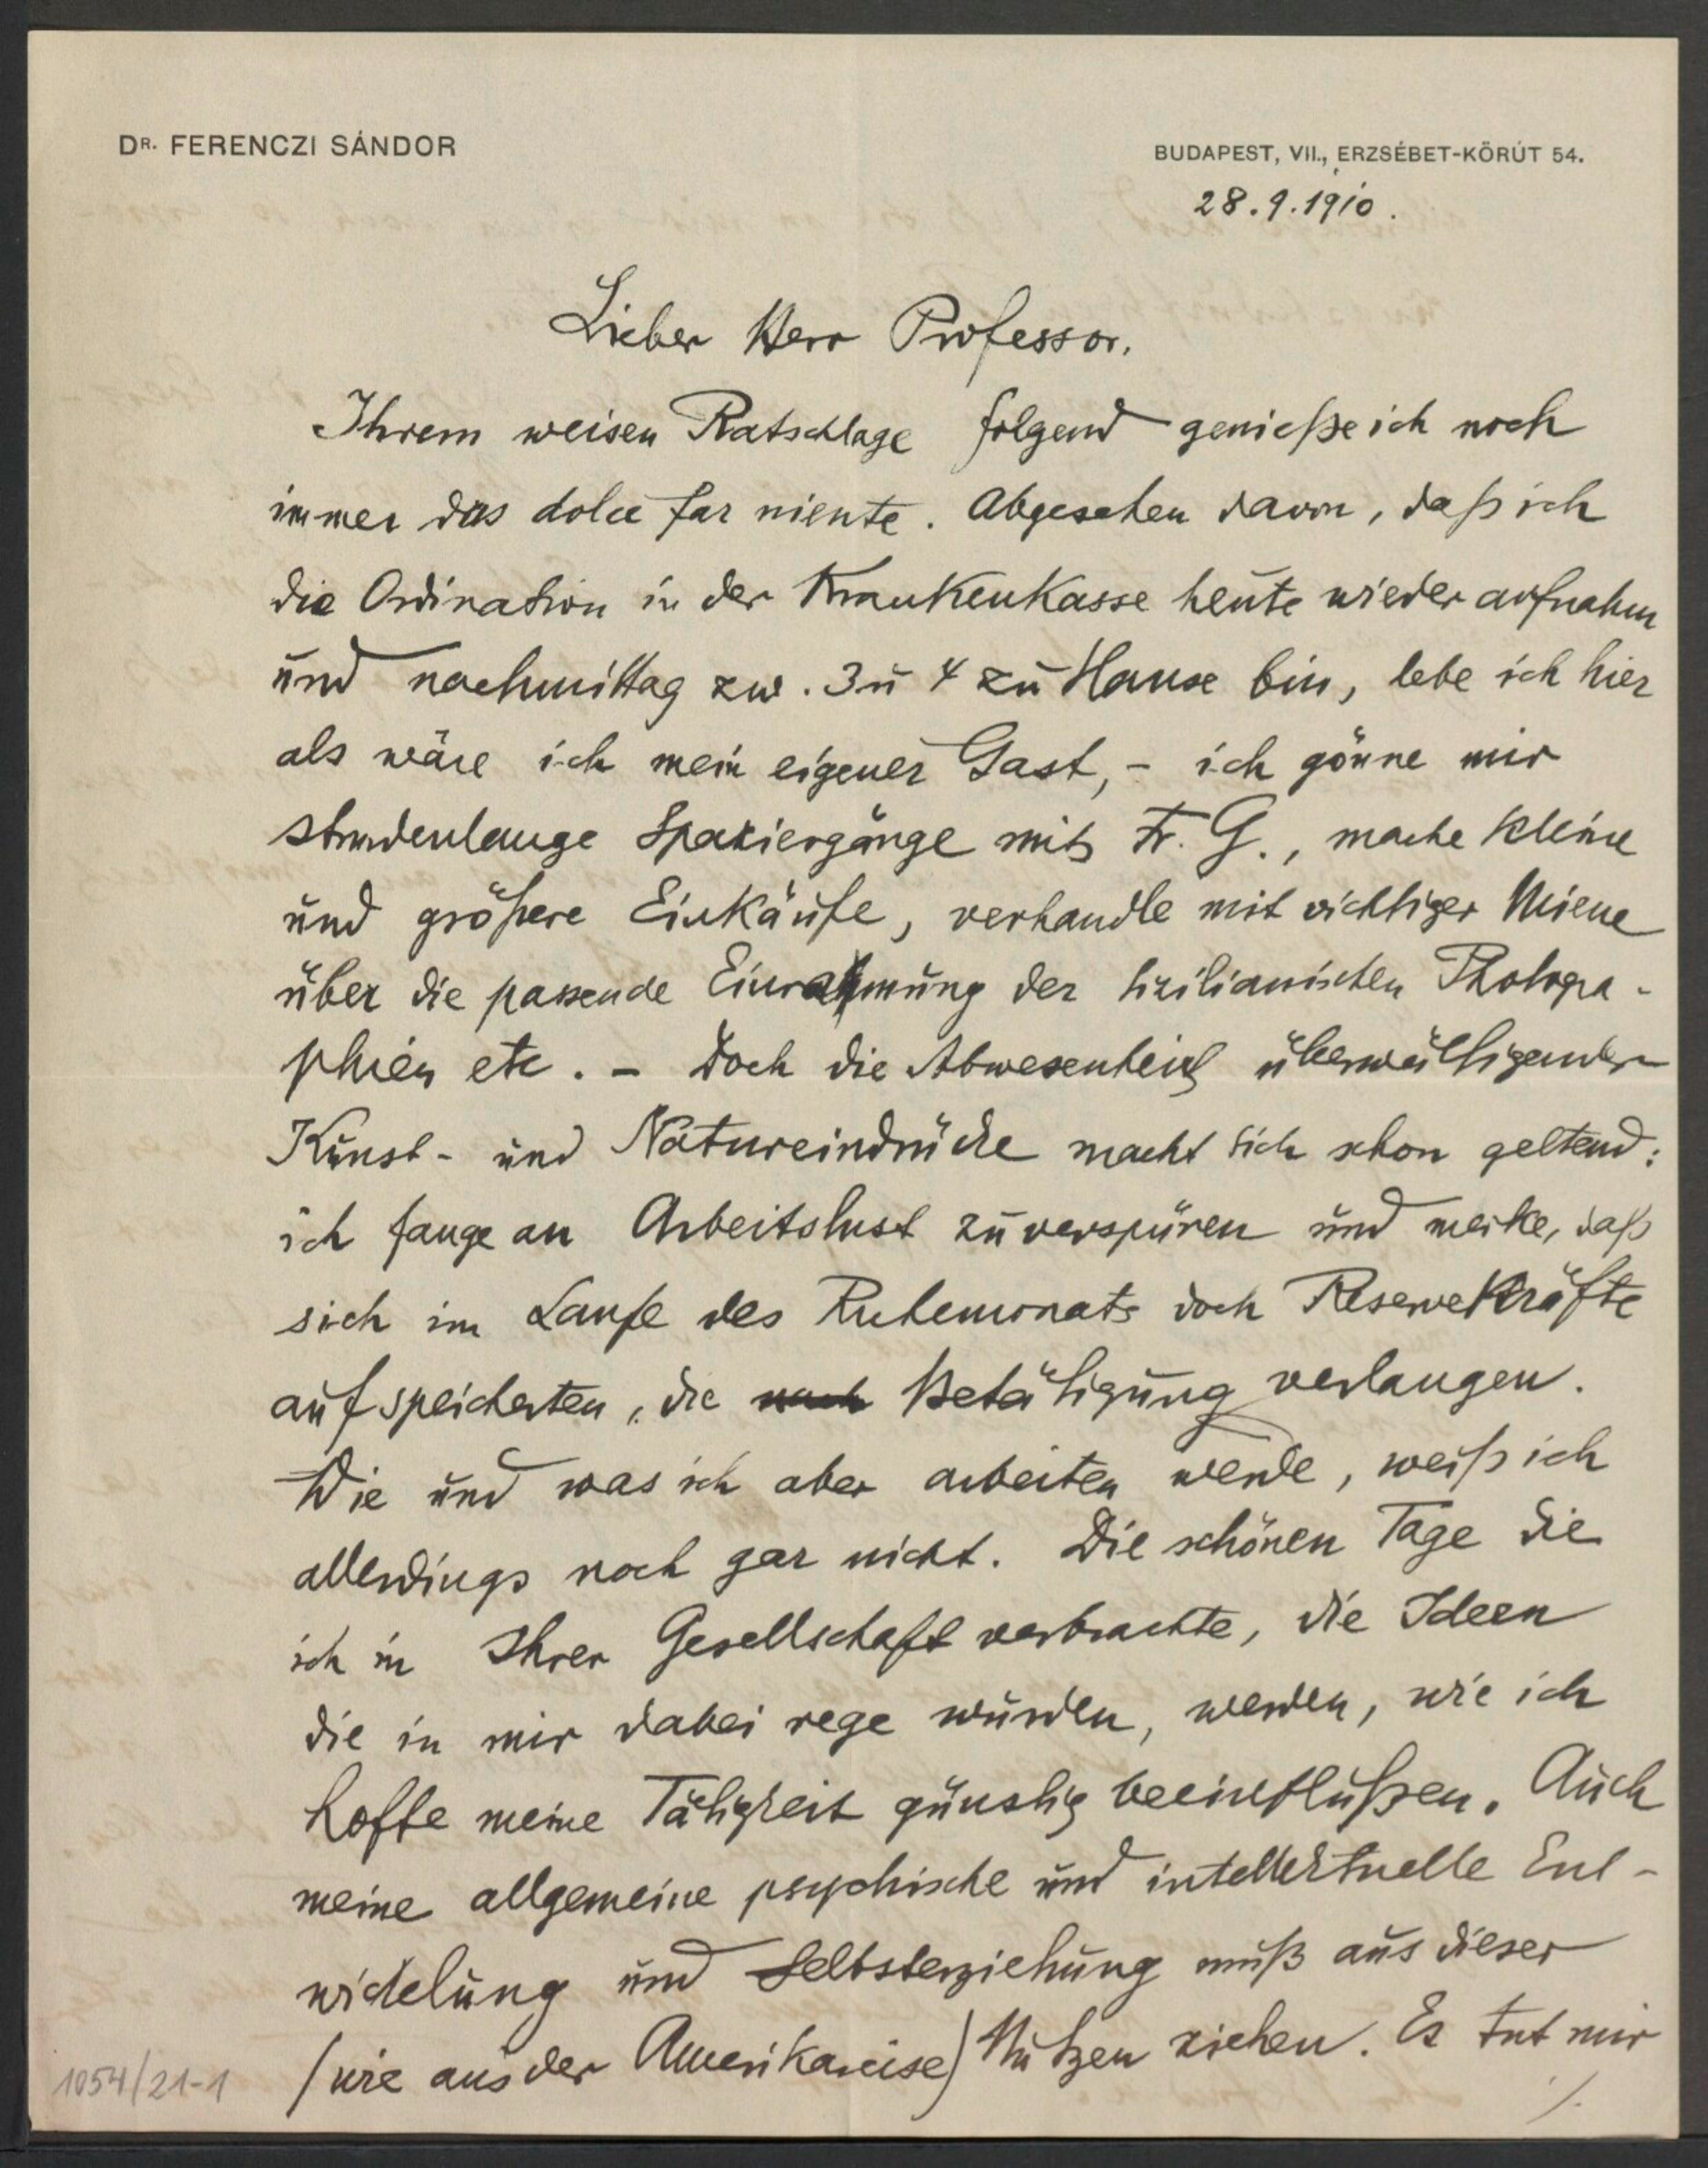 DR. FERENCZI SÁNDOR
BUDAPEST, VII., ERZSÉBET-KÖRÚT 54.
28.9.1910.
Lieber Herr Professor.
Ihrem weisen Ratschlage folgend genieße ich noch
immer das dolce far niente. Abgesehen davon, daß ich
die Ordination in der Krankenkasse heute wieder aufnahm
und nachmittag zw. 3 u 4 zu Hause bin, lebe ich hier
als wäre ich mein eigener Gast, - ich gönne mir
stundenlange Spaziergänge mit Fr. G., mache kleine
und größere Einkäufe, verhandle mit wichtiger Miene
über die passende Einrahmung der sizilianischen Photogra-
phien etc. - Doch die Abwesenheit überwältigender
Kunst- und Natureindrücke macht sich schon geltend:
ich fange an Arbeitslust zu verspüren und merke, daß
sich im Laufe des Ruhemonats doch Reservekräfte
aufspeicherten, die nach Betätigung verlangen.
Wie und was ich aber arbeiten werde, weiß ich
allerdings noch gar nicht. Die schönen Tage die
ich in Ihrer Gesellschaft verbrachte, die Ideen
die in mir dabei rege wurden, werden, wie ich
hoffe meine Tätigkeit günstig beeinflußen. Auch
meine allgemeine psychische und intellektuelle Ent-
wickelung und Selbsterziehung muß aus dieser
(wie aus der Amerikareise) Nutzen ziehen. Es tut mir
./.
1054/21-1